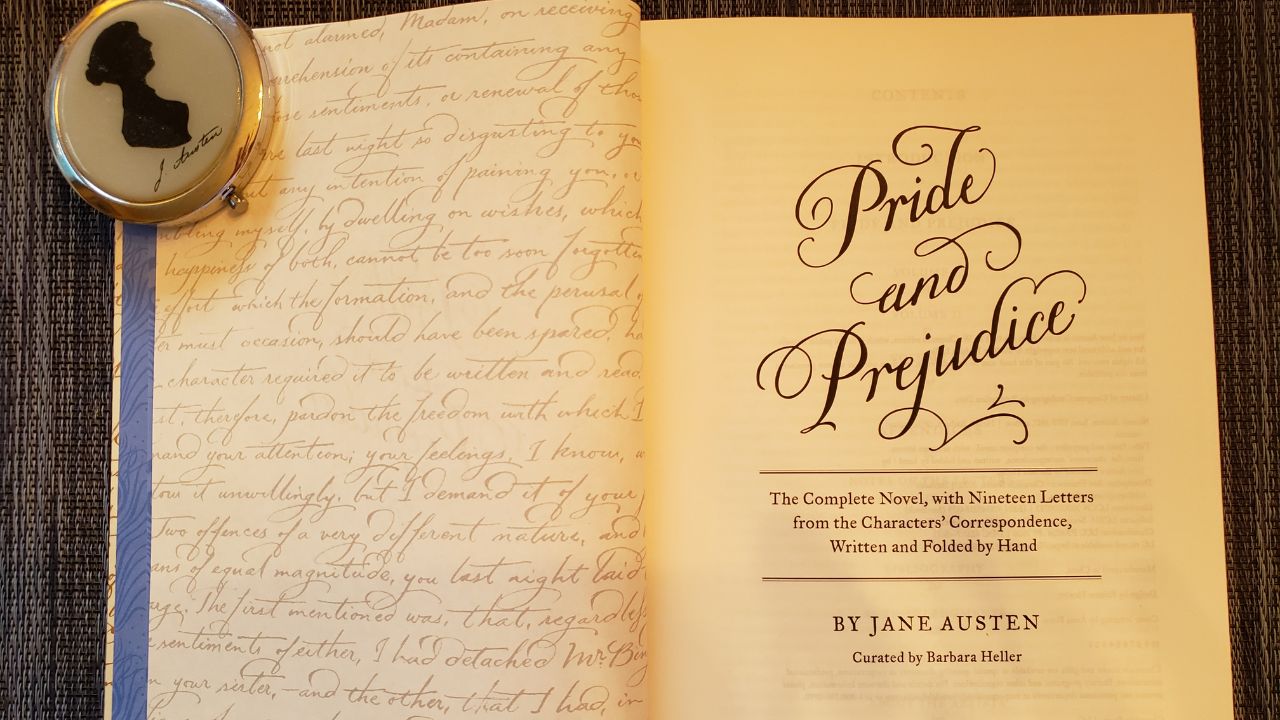 J Austen
not alarmed, Madam, on receiving
of its containing any
sentiments, or renewal of
last night so disgusting to
any intention of paining you, or
myself, by dwelling on wishes, which
happiness of both, cannot be too soon forgotten
effort which the formation, and the perusal
must occasion, should have been spared, had
character required it to be written and read
therefore, pardon the freedom with which I
your attention; your feelings, I know,
it unwillingly, but I demand it of your
Two offences of a very different nature, and
of equal magnitude, you last night laid
The first mentioned was, that, regardless
sentiments of either, I had detached Mr. Bin
your sister,—and the other, that I had, in
CONTENTS
Pride
and
Prejudice
The Complete Novel, with Nineteen Letters
from the Characters' Correspondence,
Written and Folded by Hand
BY JANE AUSTEN
Curated by Barbara Heller